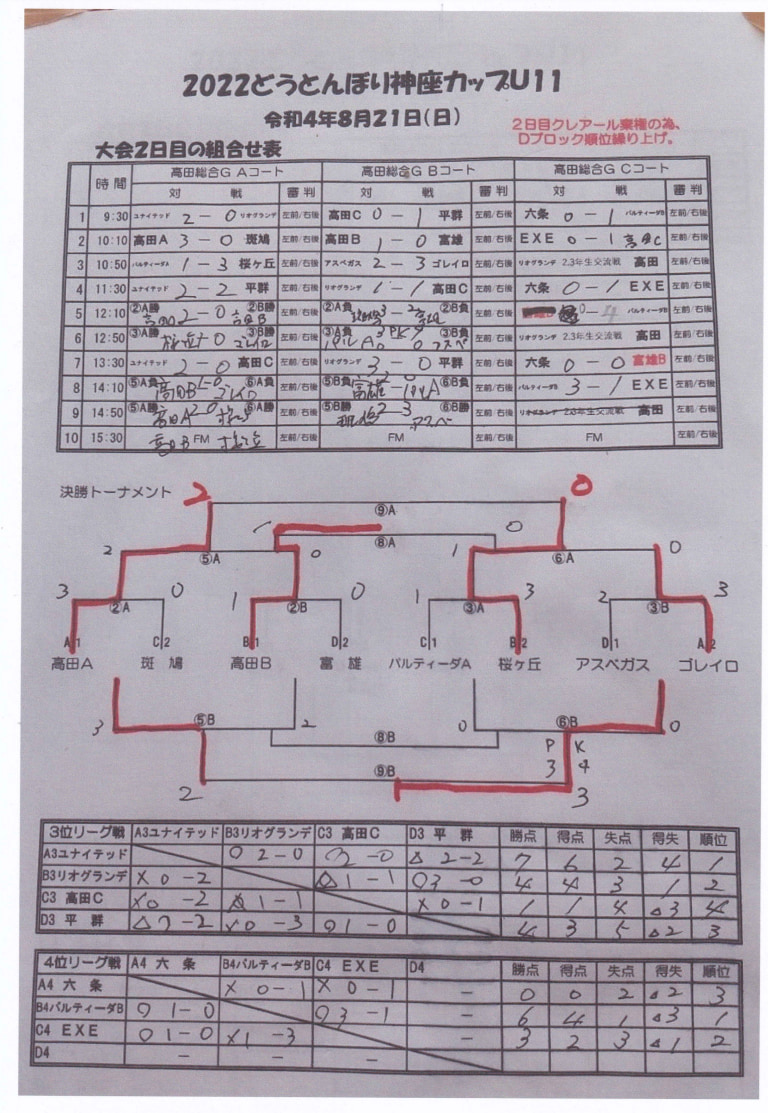 2022どうとんぼり神座カップU11
令和4年8月21日(日)
2日目クレアール棄権の為、
Dブロック順位繰り上げ。
大会2日目の組合せ表
時間 高田総合G Aコート 高田総合G Bコート 高田総合G Cコート
対 戦 審判 対 戦 審判 対 戦 審判
1 9:30 ユナイテッド 2-0 リオグランデ 左前/右後 高田C 0-1 平群 左前/右後 六条 0-1 パルティーダB 左前/右後
2 10:10 高田A 3-0 斑鳩 左前/右後 高田B 1-0 富雄 左前/右後 EXE 0-1 高田C 左前/右後
3 10:50 パルティーダA 1-3 桜ヶ丘 左前/右後 アスペガス 2-3 ゴレイロ 左前/右後 リオグランデ 2.3年生交流戦 高田 左前/右後
4 11:30 ユナイテッド 2-2 平群 左前/右後 リオグランデ 1-1 高田C 左前/右後 六条 0-1 EXE 左前/右後
5 12:10 ②A勝 高田A 2-0 ②B勝 高田B 左前/右後 ②A負 3-2 ②B負 左前/右後 0-4 パルティーダB 左前/右後
6 12:50 ③A勝 ③B勝 ゴレイロ 左前/右後 ③A負 パルA PK ③B負 アスペ 左前/右後 リオグランデ 2.3年生交流戦 高田 左前/右後
7 13:30 ユナイテッド 2-0 高田C 左前/右後 リオグランデ 3-0 平群 左前/右後 六条 0-0 富雄B 左前/右後
8 14:10 ⑤A負 高田B 1-0 ⑥A負 ゴレイロ 左前/右後 ⑤B負 富雄 - パルA ⑥B負 左前/右後 パルティーダB 3-1 EXE 左前/右後
9 14:50 ⑤A勝 高田A 2-0 ⑥A勝 左前/右後 ⑤B勝 2-3 ⑥B勝 アスペ 左前/右後 リオグランデ 2.3年生交流戦 高田 左前/右後
10 15:30 高田B FM 左前/右後 FM 左前/右後 FM 左前/右後
決勝トーナメント
2 0
⑨A
1 0
⑧A
2 0 1 0
⑤A ⑥A
3 0 1 0 1 3 2 3
②A ②B ③A ③B
A1 C2 B1 D2 C1 B2 D1 A2
高田A 斑鳩 高田B 富雄 パルティーダA 桜ヶ丘 アスペガス ゴレイロ
3 ⑤B 2 0 ⑥B 0
⑧B
PK
3 4
⑨B
2 3
3位リーグ戦 A3ユナイテッド B3リオグランデ C3 高田C D3 平群 勝点 得点 失点 得失 順位
A3ユナイテッド ○2-0 ○2-0 △2-2 7 6 2 4 1
B3リオグランデ ×0-2 △1-1 ○3-0 4 4 3 1 2
C3 高田C ×0-2 △1-1 ×0-1 1 1 4 △3 4
D3 平群 △2-2 ×0-3 ○1-0 4 3 5 △2 3
4位リーグ戦 A4 六条 B4パルティーダB C4 EXE D4 勝点 得点 失点 得失 順位
A4 六条 ×0-1 ×0-1 - 0 0 2 △2 3
B4パルティーダB ○1-0 ○3-1 - 6 4 1 △3 1
C4 EXE ○1-0 ×1-3 - 3 2 3 △1 2
D4 - - -